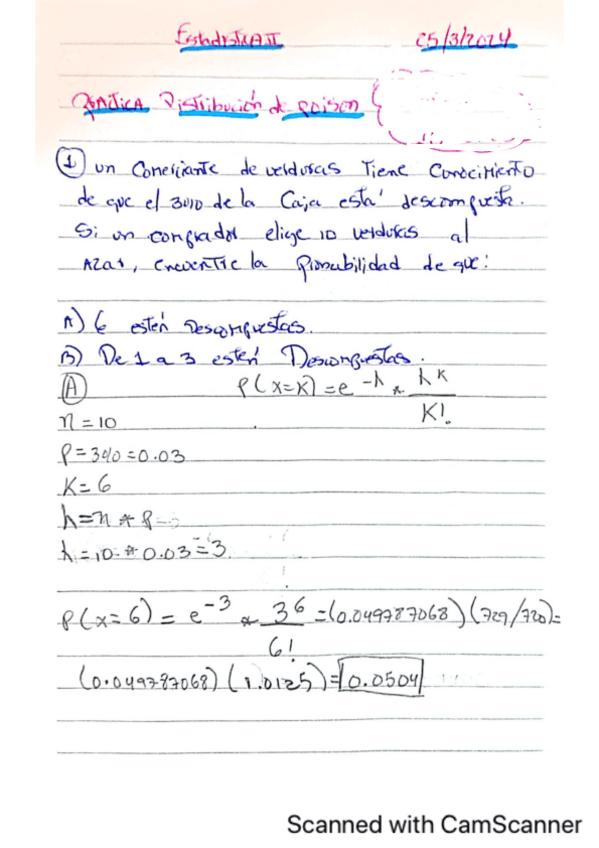 Estadística II 05/3/2024
Práctica Distribución de poison
① un Comerciante de verduras Tiene Conocimiento
de que el 3% de la Caja está descompuesta.
Si un comprador elige 10 verduras al
Azar, encuentre la probabilidad de que:
A) 6 estén Descompuestas.
B) De 1 a 3 estén Descompuestas.
Ⓐ P(x=K) = e^-λ * λ^K / K!
n = 10
P = 3% = 0.03
K = 6
λ = n * P =
λ = 10 * 0.03 = 3
P(x=6) = e^-3 * 3^6 / 6! = (0.049787068)(729/720) =
(0.049787068)(1.0125) = 0.0504
Scanned with CamScanner